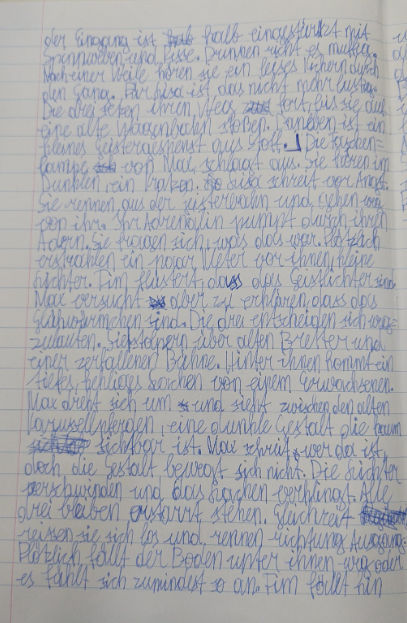 der Eingang ist halb eingestürzt mit
Spinnweben und Risse. Drinnen riecht es muffig.
Nach einer Weile hören sie ein leises Kichern durch
den Gang. Für Lisa ist das nicht mehr lustig.
Die drei setzen ihren Weg fort, bis sie auf
eine alte Wagenbahn stoßen. Daneben ist ein
kleines Geistergespenst aus Stoff. Die Taschen-
lampe von Max schlagt aus. Sie hören im
Dunklen, ein Kratzen. Lisa schreit vor Angst.
Sie rennen aus der Geisterbahn und gehen weg
von ihr. Ihr Adrenalin pumpt durch ihren
Adern. Sie fragen sich, was das war. Plötzlich
erstrahlen ein paar Meter vor ihnen kleine
Lichter. Tim flüstert, dass das Geistlichter sind.
Max versucht aber zu erklären, dass das
Glühwürmchen sind. Die drei entscheiden sich
zulaufen. Sie stolpern über alten Bretter und
einer zerfallenen Bühne. Hinter ihnen kommt ein
tiefes, Lachen von einem Erwachsenen.
Max dreht sich um und sieht zwischen den alten
Karussellpferden, eine dunkle Gestalt die kaum
sichtbar ist. Max schreit, wer da ist,
doch die Gestalt bewegt sich nicht. Die Lichter
verschwinden und das Lachen verklingt. Alle
drei bleiben erstarrt stehen. Gleichzeit
reissen sie sich los und rennen richtung Ausgang.
Plötzlich fällt der Boden unter ihnen weg oder
es fühlt sich zumindest so an. Tim fällt hin